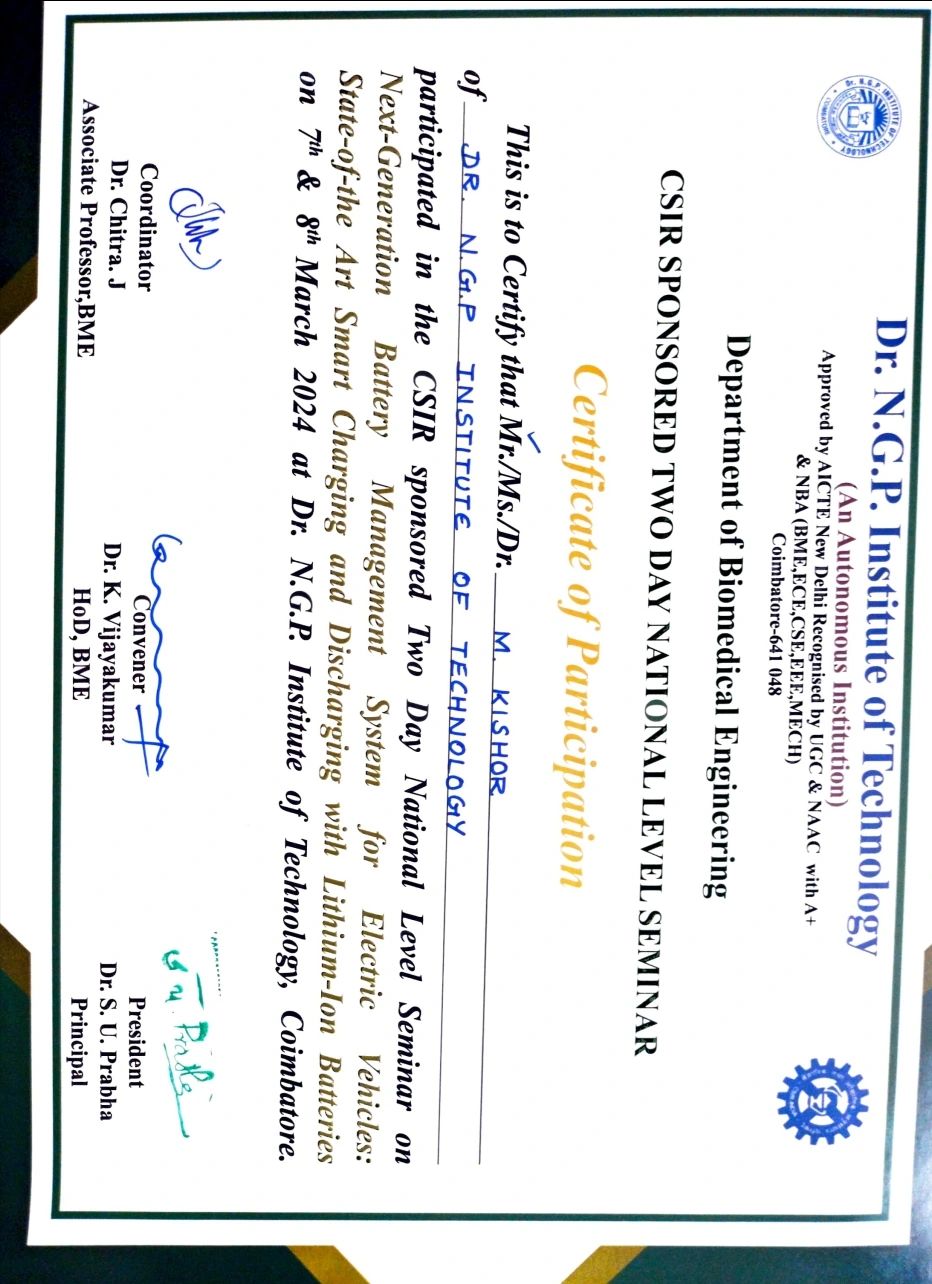 Dr. N.G.P. Institute of Technology
(An Autonomous Institution)
Approved by AICTE New Delhi Recognised by UGC & NAAC with A+
& NBA (BME,ECE,CSE,EEE,MECH)
Coimbatore-641 048
Department of Biomedical Engineering
CSIR SPONSORED TWO DAY NATIONAL LEVEL SEMINAR
Certificate of Participation
This is to Certify that Mr./Ms./Dr. M. KISHOR
of DR. N.G.P INSTITUTE OF TECHNOLOGY
participated in the CSIR sponsored Two Day National Level Seminar on
Next-Generation Battery Management System for Electric Vehicles:
State-of-the Art Smart Charging and Discharging with Lithium-Ion Batteries
on 7th & 8th March 2024 at Dr. N.G.P. Institute of Technology, Coimbatore.
Coordinator
Dr. Chitra. J
Associate Professor,BME
Convener
Dr. K. Vijayakumar
HoD, BME
President
Dr. S. U. Prabha
Principal
DR. N.G.P INSTITUTE OF TECHNOLOGY
COIMBATORE